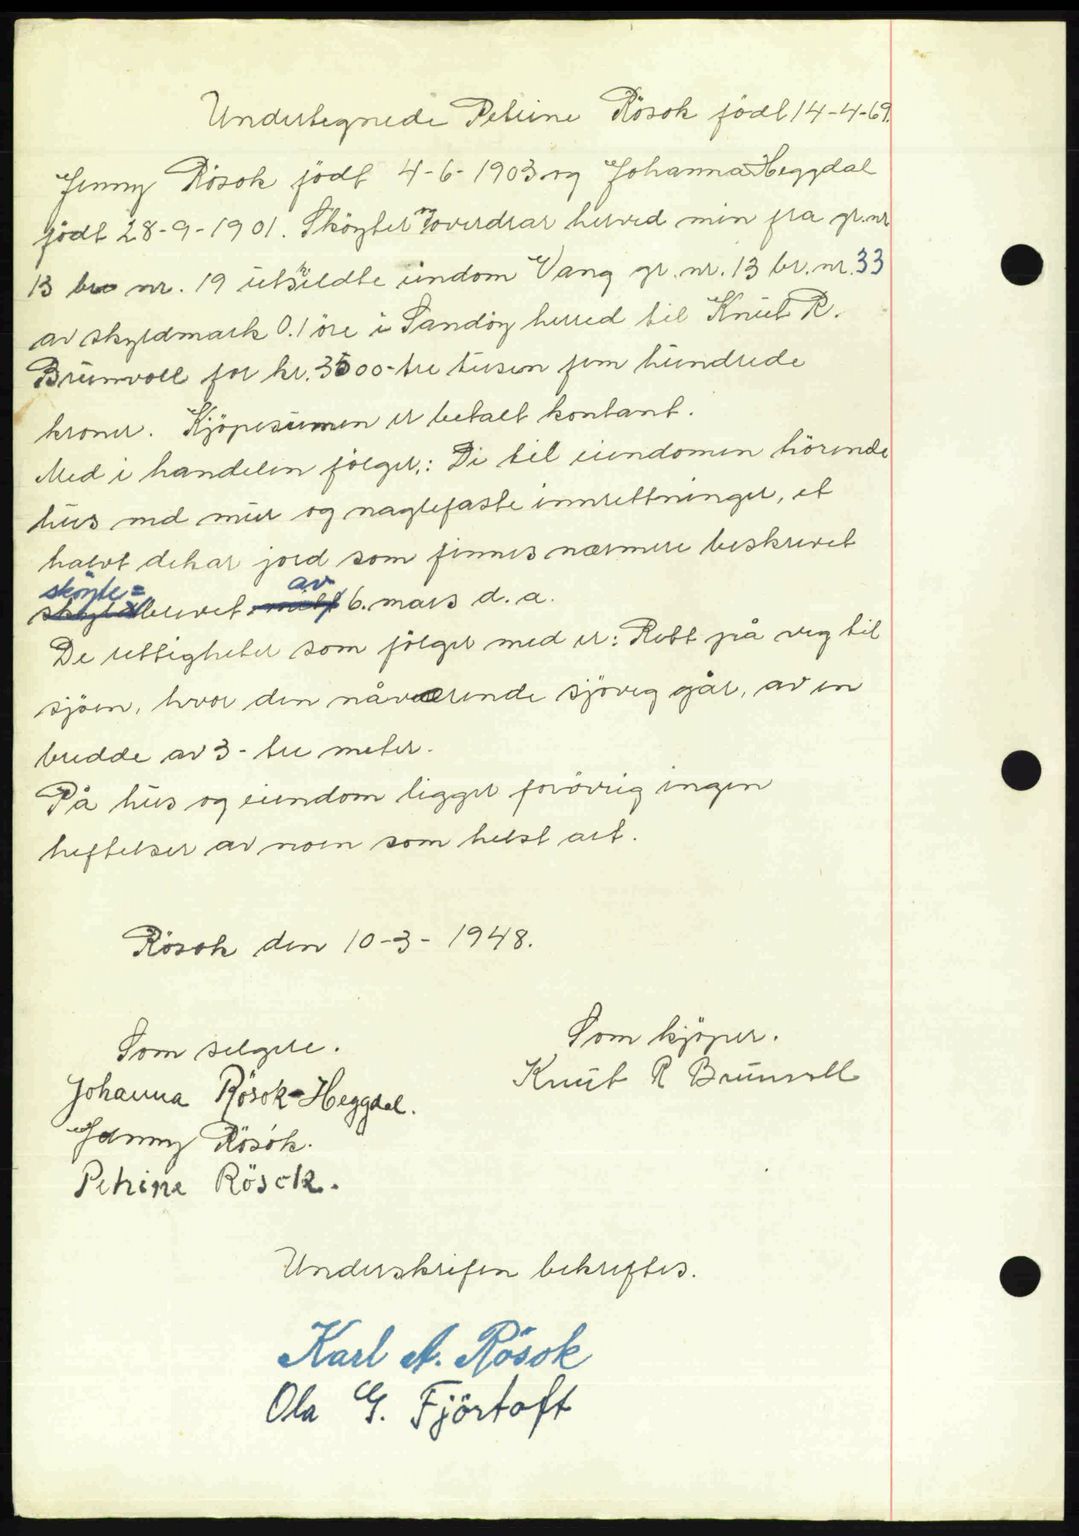 Undertegnede Petrine Rösok född 14-4-69.
Jenny Rösok född 4-6-1903 og Johanna Heggdal
född 28-9-1901. Sköyter overdrar herved min fra gr.nr
13 br nr. 19 utskildte eindom Vang gr. nr. 13 br. nr. 33
av skyldmark 0.1 öre i Sandöy herred til Knut R.
Brunvoll for kr. 3500 - tre tusen fem hundrede
kroner. Kjöpesummen er betalt kontant.
Med i handelen fölger,: De til eiendomen hörende
hus med mur og naglefaste innrettninger, et
halvt dekar jord som finnes nærmere beskrevet
sköyte= av
brevet 6. mars d. a.
De rettigheter som fölger med er: Rett på veg til
sjöen, hvor den nåværende sjöveg går, av en
bredde av 3 - tre meter.
På hus og eiendom ligger forövrig ingen
heftelser av noen som helst art.
Rösok den 10-3-1948.
Som selgere.
Johanna Rösok-Heggdal.
Jenny Rösok.
Petrine Rösok.
Som kjöper.
Knut R Brunvoll
Underskrifen bekreftes.
Karl A. Rösok
Ola G. Fjörtoft